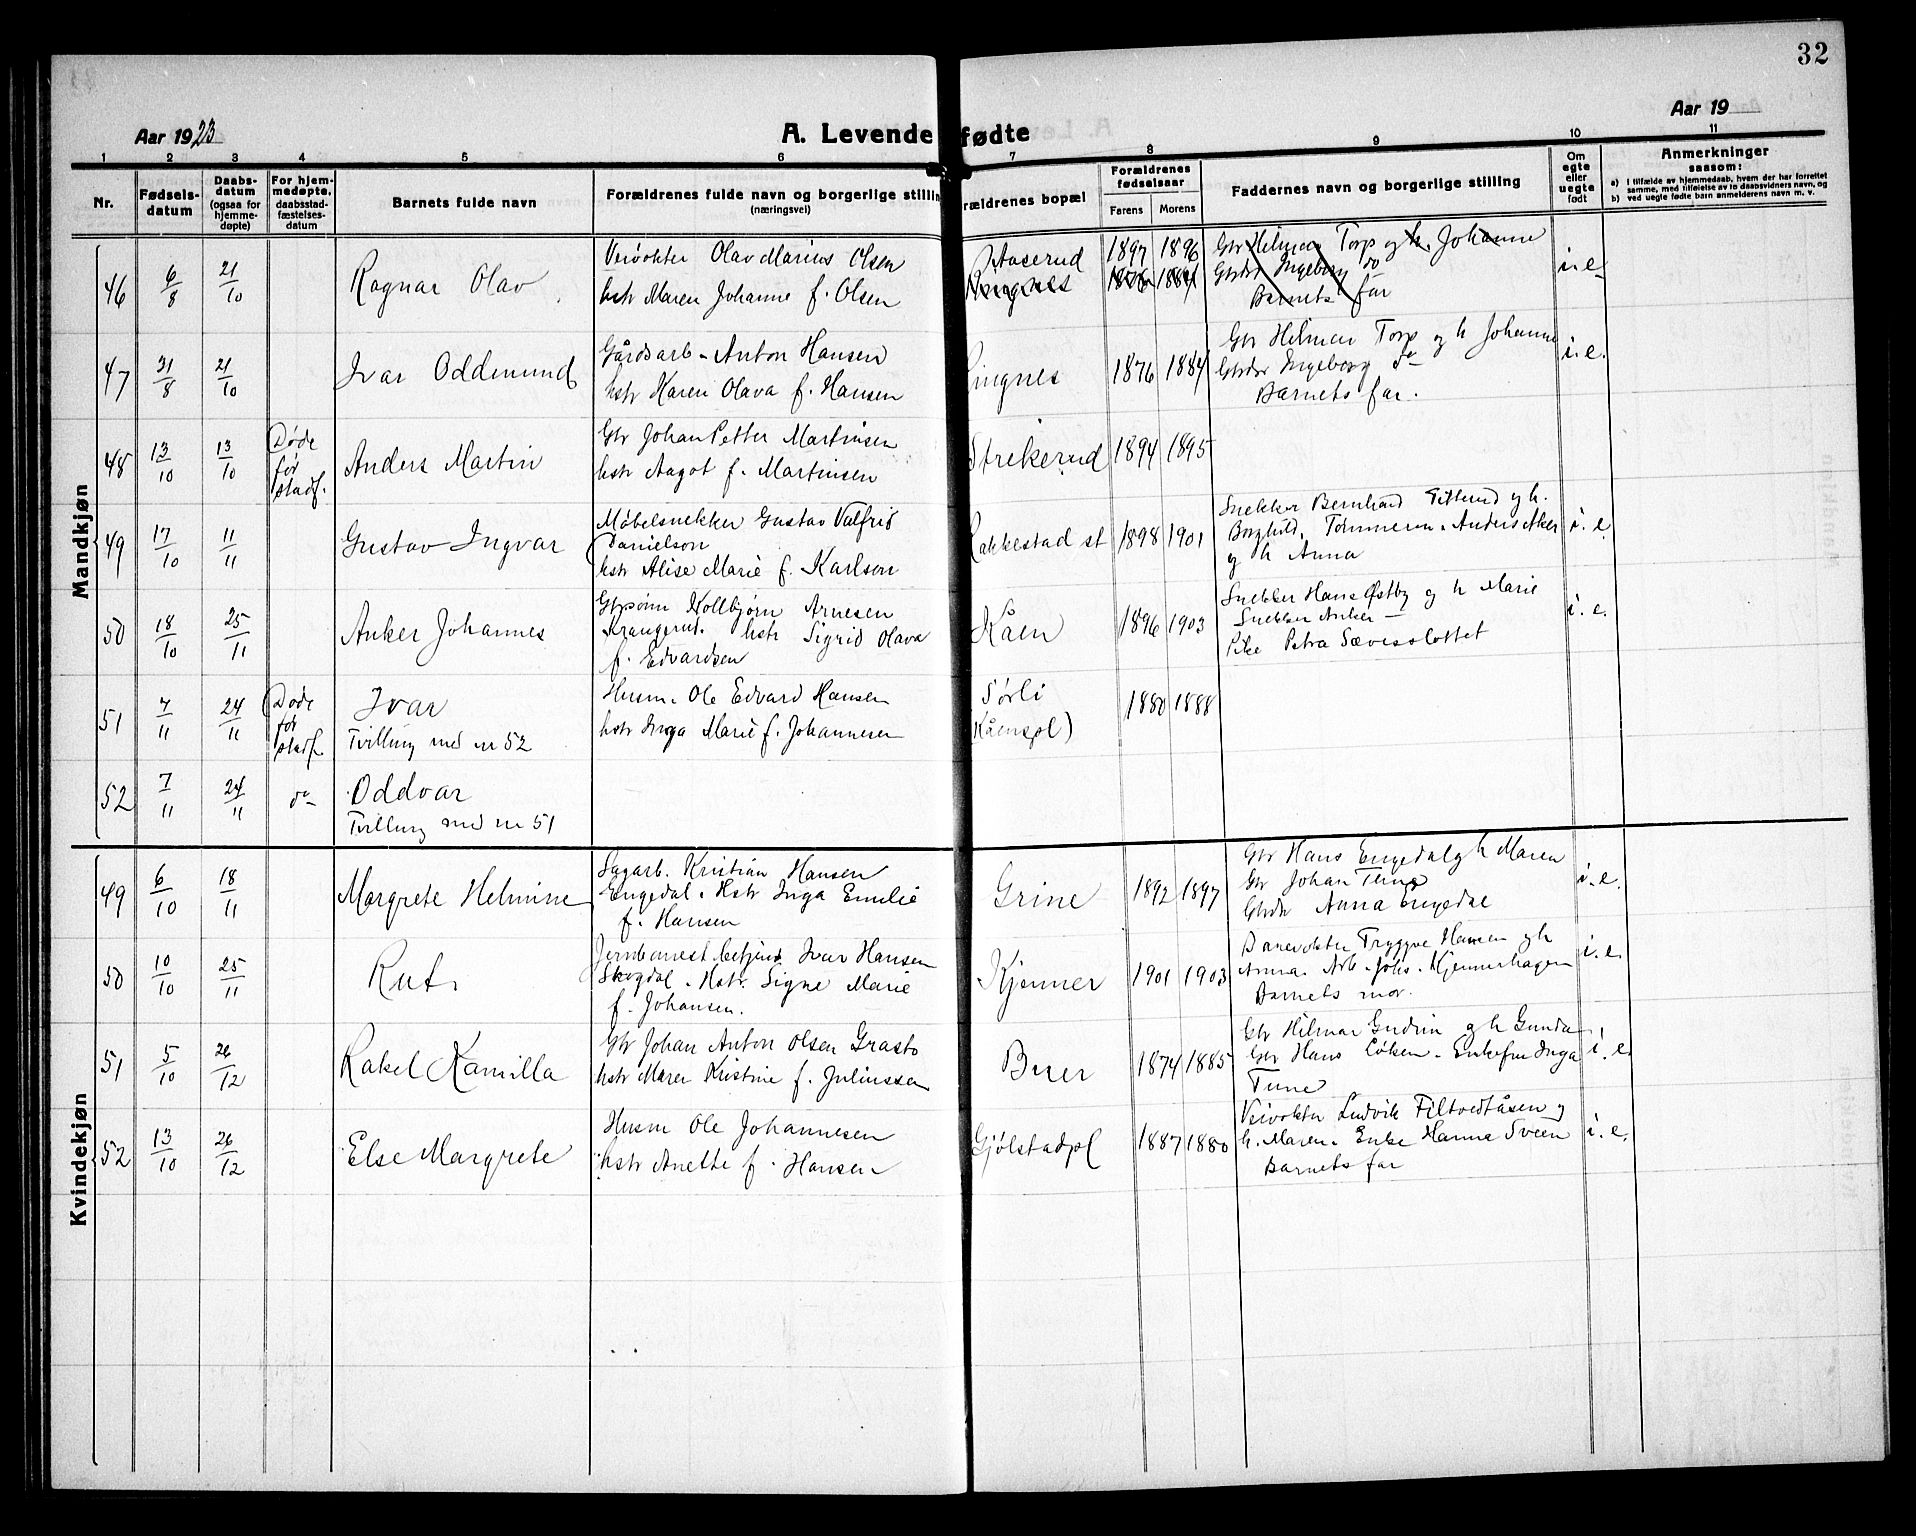 32
Aar 1923
A. Levende fødte
Aar 19
1 2 3 4 5 6 7 8 9 10 11
Nr.
Fødsels-
datum
Daabs-
datum
(ogsaa for
hjemme-
døpte)
For hjem-
medøpte,
daabsstad-
fæstelses-
datum
Barnets fulde navn
Forældrenes fulde navn og borgerlige stilling
(næringsvei)
Forældrenes bopæl
Forældrenes
fødselsaar
Farens
Morens
Faddernes navn og borgerlige stilling
Om
egte
eller
uegte
født
Anmerkninger
saasom:
a) I tilfælde av hjemmedaab, hvem der har forrettet
samme, med tilføielse av to daabsvidners navn, og
b) ved uegte fødte barn anmelderens navn m. v.
Mandkjøn
46
6/8
21/10
Ragnar Olav
Veivokter Olav Marius Olsen
hstr Maren Johanne f. Olsen
Aaserud
Ringnes
1897 1896
1876 1884
Gbr Hilmar Torp og h. Johanne
Gbrdtr Ingeborg do
Barnets far
i. e.
47
31/8
21/10
Ivar Oddmund
Gårdsarb. Anton Hansen
hstr Karen Olava f. Hansen
Ringnes
1876 1884
Gbr Hilmar Torp og h Johanne
Gbrdtr Ingeborg do
Barnets far.
i. e.
48
13/10
13/10
Døde
før
stadf.
Anders Martin
Gbr Johan Petter Martinsen
hstr Aagot f. Martinsen
Strekerud
1894 1895
49
17/10
11/11
Gustav Ingvar
Møbelsnekker Gustav Valfrid
Danielson
hstr Alise Marie f. Karlson
Rakkestad st
1898 1901
Snekker Bernhard og h.
Borghild, Tømmerm. Anders Aker
og h Anna
i. e.
50
18/10
25/11
Anker Johannes
Gbrsønn Kollbjørn Arnesen
Krangerud. hstr Sigrid Olava
f. Edvardsen
Kåen
1896 1903
Snekker Hans Østby og h Marie
Snekker Anker —
Pike Petra Sævesslottet
i. e.
51
7/11
24/11
Døde
før
stadf.
Ivar
Tvilling med nr 52
Husm. Ole Edvard Hansen
hstr Inga Marie f. Johannesen
Sørli
(Kåenspl)
1880 1888
52
7/11
24/11
do
Oddvar
Tvilling med nr 51
Kvindekjøn
49
6/10
18/11
Margrete Helmine
Sagarb. Kristian Hansen
Engedal. Hstr Inga Emilie
f. Hansen
Grine
1892 1897
Gbr Hans Engedal og h Maren
Gbr Johan Tune
Gbrdtr Anna Engedal
i. e.
50
10/10
25/11
Rut.
Jernbanest.betjent Ivar Hansen
Skogdal. Hstr. Signe Marie
f. Johansen.
Kjenner
1901 1903
Banevokter Tryggve Hansen og h
Anna. Arb. Johs. Kjennerhagen
Barnets mor.
i. e.
51
5/10
26/12
Rakel Kamilla
Gbr Johan Anton Olsen Grasto
hstr Maren Kristine f. Juliussen
Buer
1874 1885
Gbr Hilmar Gudim og h Gunda
Gbr Hans Løken. Enkefru Inga
Tune
i. e.
52
13/10
26/12
Else Margrete
Husm Ole Johannesen
hstr Anette f. Hansen
Gjølstadpl
1887 1880
Veivokter Ludvik Filtvedtåsen og
h. Maren. Enke Hanna Sveen
Barnets far
i. e.